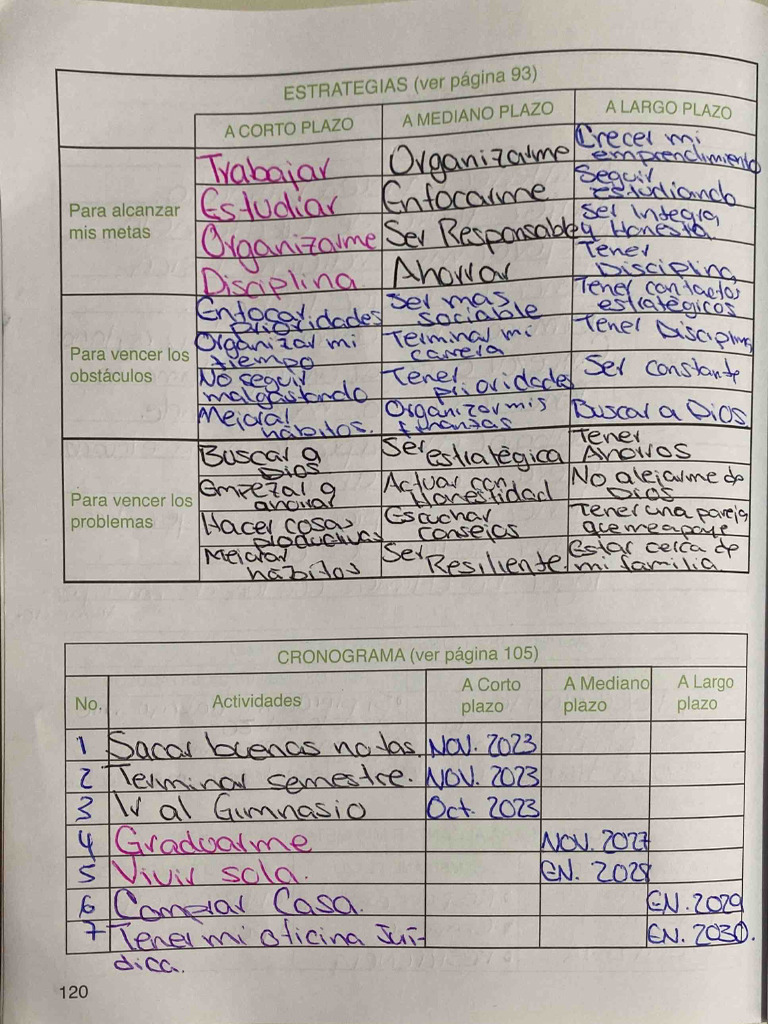 ESTRATEGIAS (ver página 93)
A CORTO PLAZO A MEDIANO PLAZO A LARGO PLAZO
Para alcanzar mis metas
Trabajar Organizarme Crecer mi emprendimiento
Estudiar Enfocarme Seguir estudiando
Organizarme Ser Responsable Ser Integra y Honesta.
Disciplina Ahorrar Tener Disciplina
Para vencer los obstáculos
Enfocar prioridades Ser mas sociable Tener contactos estratégicos
Organizar mi tiempo Terminar mi carrera Tener Disciplina
No seguir malgastando Tener prioridades Ser constante
Mejorar hábitos. Organizar mis finanzas Buscar a Dios
Para vencer los problemas
Buscar a Dios Ser estratégica Tener Ahorros
Empezar a ahorrar Actuar con Honestidad No alejarme de Dios
Hacer cosas productivas Escuchar consejos Tener una pareja que me apoye
Mejorar hábitos Ser Resiliente. Estar cerca de mi familia
CRONOGRAMA (ver página 105)
No. Actividades A Corto plazo A Mediano plazo A Largo plazo
1 Sacar buenas notas. Nov. 2023
2 Terminar semestre. Nov. 2023
3 Ir al Gimnasio Oct. 2023
4 Graduarme Nov. 2027
5 Vivir sola. EN. 2028
6 Comprar Casa. EN. 2029
7 Tener mi oficina Jurí- EN. 2030.
dica.
120